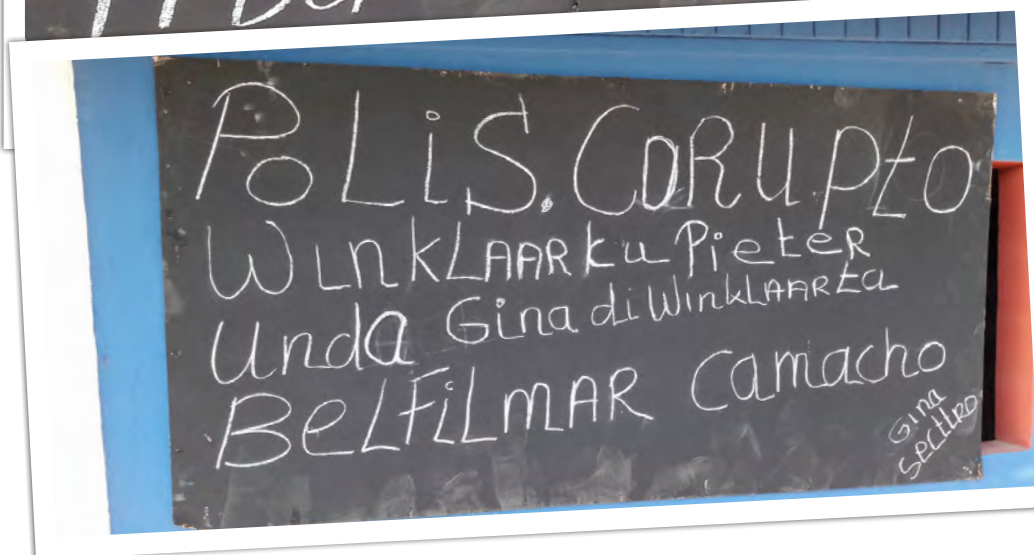 PoLiS. CORUpto
WinkLAAR ku Pieter
Unda Gina di WinkLAAR ta
BeLFiLmAR Camacho
Gina